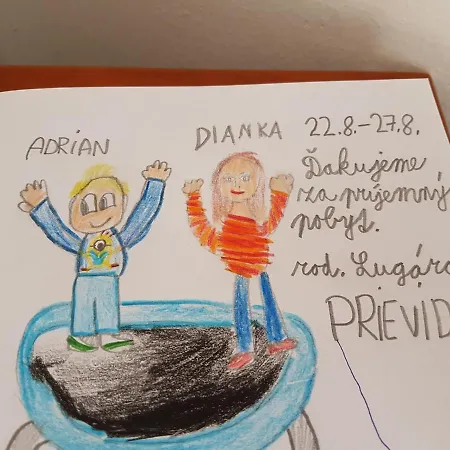 ADRIAN
DIANKA
22.8.-27.8.
Ďakujeme
za príjemný
pobyt.
rod. Lugáro
PRIEVID